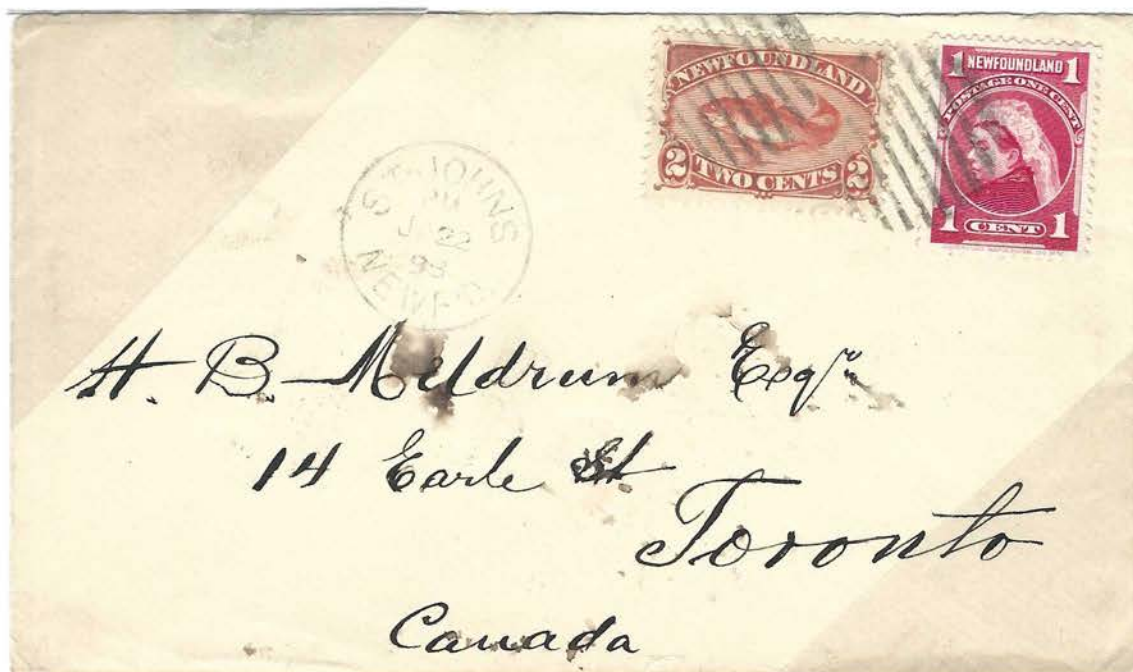 NEWFOUNDLAND
2 TWO CENTS 2
1 NEWFOUNDLAND 1
POSTAGE ONE CENT
1 CENT 1
ST. JOHNS
22
98
NEWF'D
H. B. Meldrum Esqr
14 Earle St.
Toronto
Canada